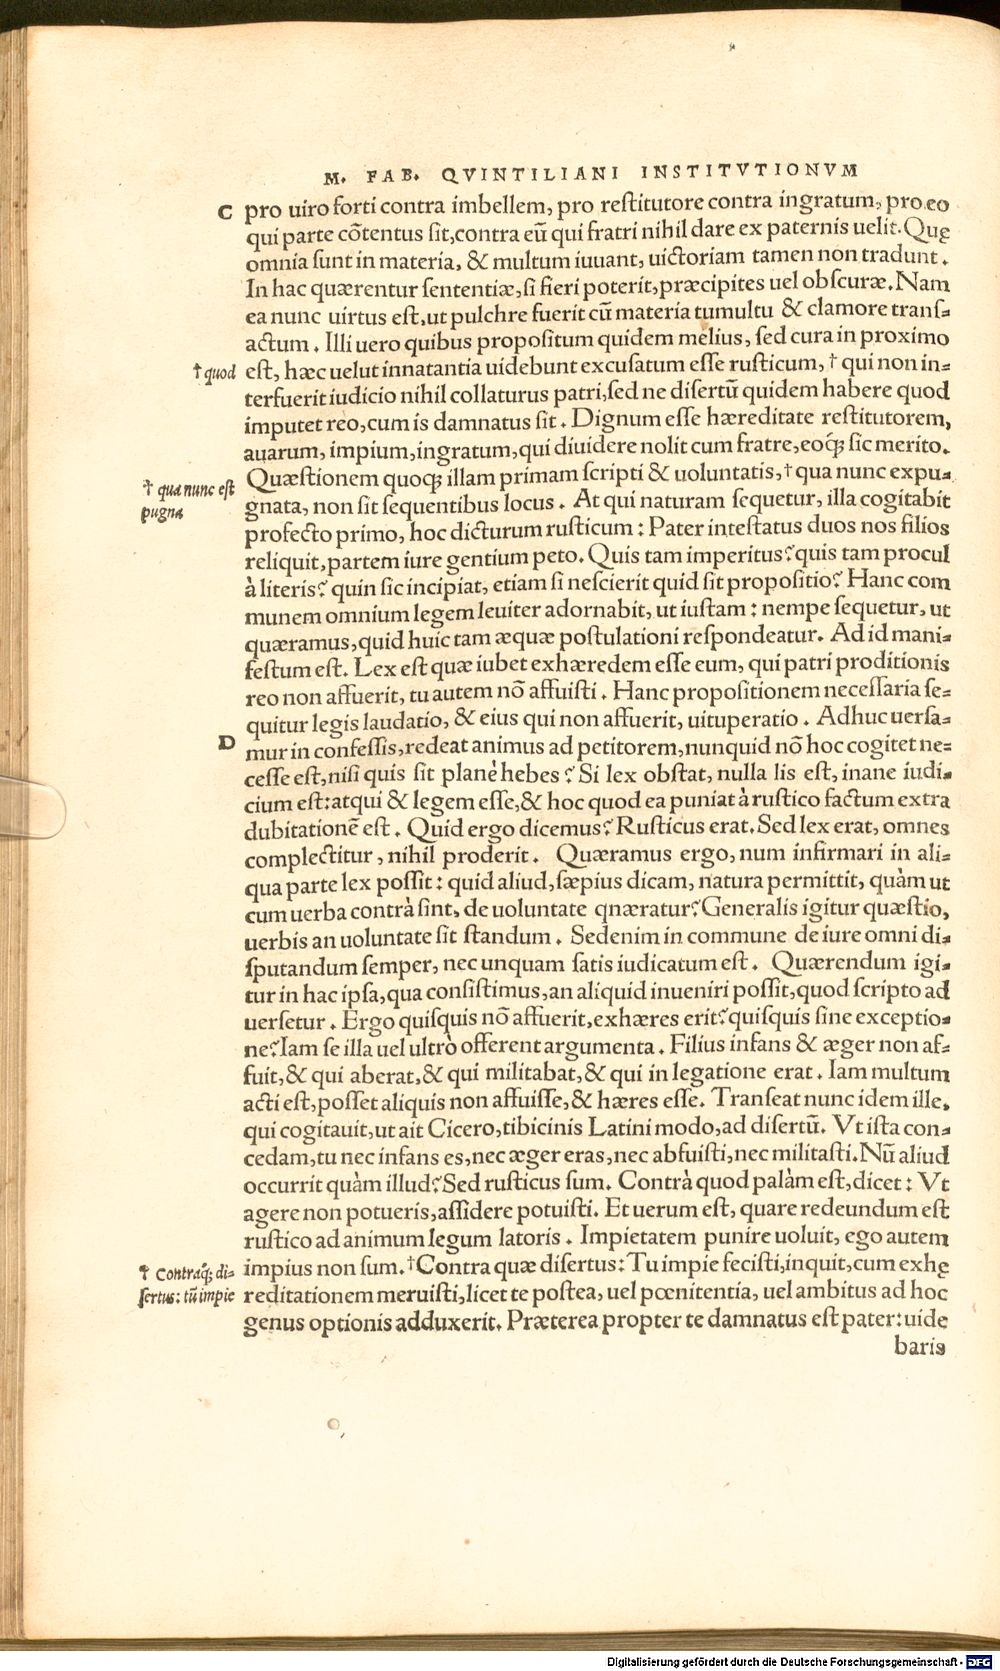 M. FAB. QVINTILIANI INSTITVTIONVM
C pro uiro forti contra imbellem, pro restitutore contra ingratum, pro eo
qui parte cōtentus sit, contra eū qui fratri nihil dare ex paternis uelit. Quę
omnia sunt in materia, & multum iuuant, uictoriam tamen non tradunt.
In hac quærentur sententiæ, si fieri poterit, præcipites uel obscuræ. Nam
ea nunc uirtus est, ut pulchre fuerit cū materia tumultu & clamore trans-
actum. Illi uero quibus propositum quidem melius, sed cura in proximo
† quod
est, hæc uelut innatantia uidebunt excusatum esse rusticum, † qui non in-
terfuerit iudicio nihil collaturus patri, sed ne disertū quidem habere quod
imputet reo, cum is damnatus sit. Dignum esse hæreditate restitutorem,
auarum, impium, ingratum, qui diuidere nolit cum fratre, eoq́ꝫ sic merito.
Quæstionem quoqꝫ illam primam scripti & uoluntatis, † qua nunc expu-
† qua nunc est
pugna
gnata, non sit sequentibus locus. At qui naturam sequetur, illa cogitabit
profecto primo, hoc dicturum rusticum: Pater intestatus duos nos filios
reliquit, partem iure gentium peto. Quis tam imperitus? quis tam procul
à literis? quin sic incipiat, etiam si nescierit quid sit propositio? Hanc com
munem omnium legem leuiter adornabit, ut iustam: nempe sequetur, ut
quæramus, quid huic tam æquæ postulationi respondeatur. Ad id mani-
festum est. Lex est quæ iubet exhæredem esse eum, qui patri proditionis
reo non affuerit, tu autem nō affuisti. Hanc propositionem necessaria se-
quitur legis laudatio, & eius qui non affuerit, uituperatio. Adhuc uersa-
D mur in confessis, redeat animus ad petitorem, nunquid nō hoc cogitet ne-
cesse est, nisi quis sit planè hebes? Si lex obstat, nulla lis est, inane iudi-
cium est: atqui & legem esse, & hoc quod ea puniat à rustico factum extra
dubitationē est. Quid ergo dicemus? Rusticus erat. Sed lex erat, omnes
complectitur, nihil proderit. Quæramus ergo, num infirmari in ali-
qua parte lex possit: quid aliud, sæpius dicam, natura permittit, quàm ut
cum uerba contrà sint, de uoluntate qnæratur? Generalis igitur quæstio,
uerbis an uoluntate sit standum. Sed enim in commune de iure omni di-
sputandum semper, nec unquam satis iudicatum est. Quærendum igi-
tur in hac ipsa, qua consistimus, an aliquid inueniri possit, quod scripto ad
uersetur. Ergo quisquis nō affuerit, exhæres erit? quisquis sine exceptio-
ne? Iam se illa uel ultrò offerent argumenta. Filius infans & æger non af-
fuit, & qui aberat, & qui militabat, & qui in legatione erat. Iam multum
acti est, posset aliquis non affuisse, & hæres esse. Transeat nunc idem ille,
qui cogitauit, ut ait Cicero, tibicinis Latini modo, ad disertū. Vt ista con-
cedam, tu nec infans es, nec æger eras, nec abfuisti, nec militasti. Nū aliud
occurrit quàm illud? Sed rusticus sum. Contrà quod palàm est, dicet: Vt
agere non potueris, assidere potuisti. Et uerum est, quare redeundum est
rustico ad animum legum latoris. Impietatem punire uoluit, ego autem
† Contraq́ꝫ di-
sertus: tū impie
impius non sum. † Contra quæ disertus: Tu impie fecisti, inquit, cum exhę
reditationem meruisti, licet te postea, uel pœnitentia, uel ambitus ad hoc
genus optionis adduxerit. Præterea propter te damnatus est pater: uide
baris
Digitalisierung gefördert durch die Deutsche Forschungsgemeinschaft - DFG